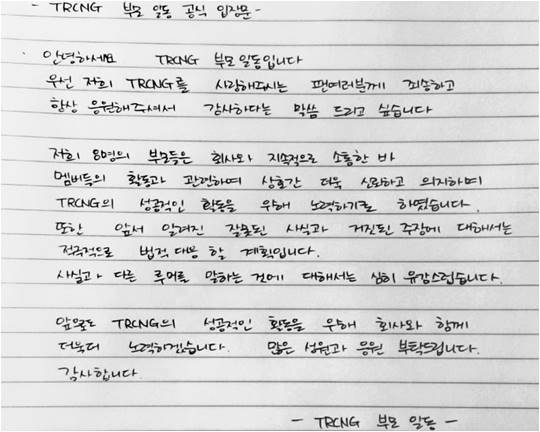 - TRCNG 부모 일동 공식 입장문 -
안녕하세요 TRCNG 부모 일동입니다
우선 저희 TRCNG를 사랑해주시는 팬여러분께 죄송하고
항상 응원해주셔서 감사하다는 말씀 드리고 싶습니다
저희 8명의 부모들은 회사와 지속적으로 소통한 바
멤버들의 활동과 관련하여 상호간 더욱 신뢰하고 의지하며
TRCNG의 성공적인 활동을 위해 노력하기로 하였습니다.
또한 앞서 알려진 잘못된 사실과 거짓된 주장에 대해서는
전국적으로 법적대응 할 계획입니다.
사실과 다른 루머를 말하는 것에 대해서는 심히 유감스럽습니다.
앞으로도 TRCNG의 성공적인 활동을 위해 회사와 함께
더욱더 노력하겠습니다. 많은 성원과 응원 부탁드립니다.
감사합니다.
- TRCNG 부모 일동 -